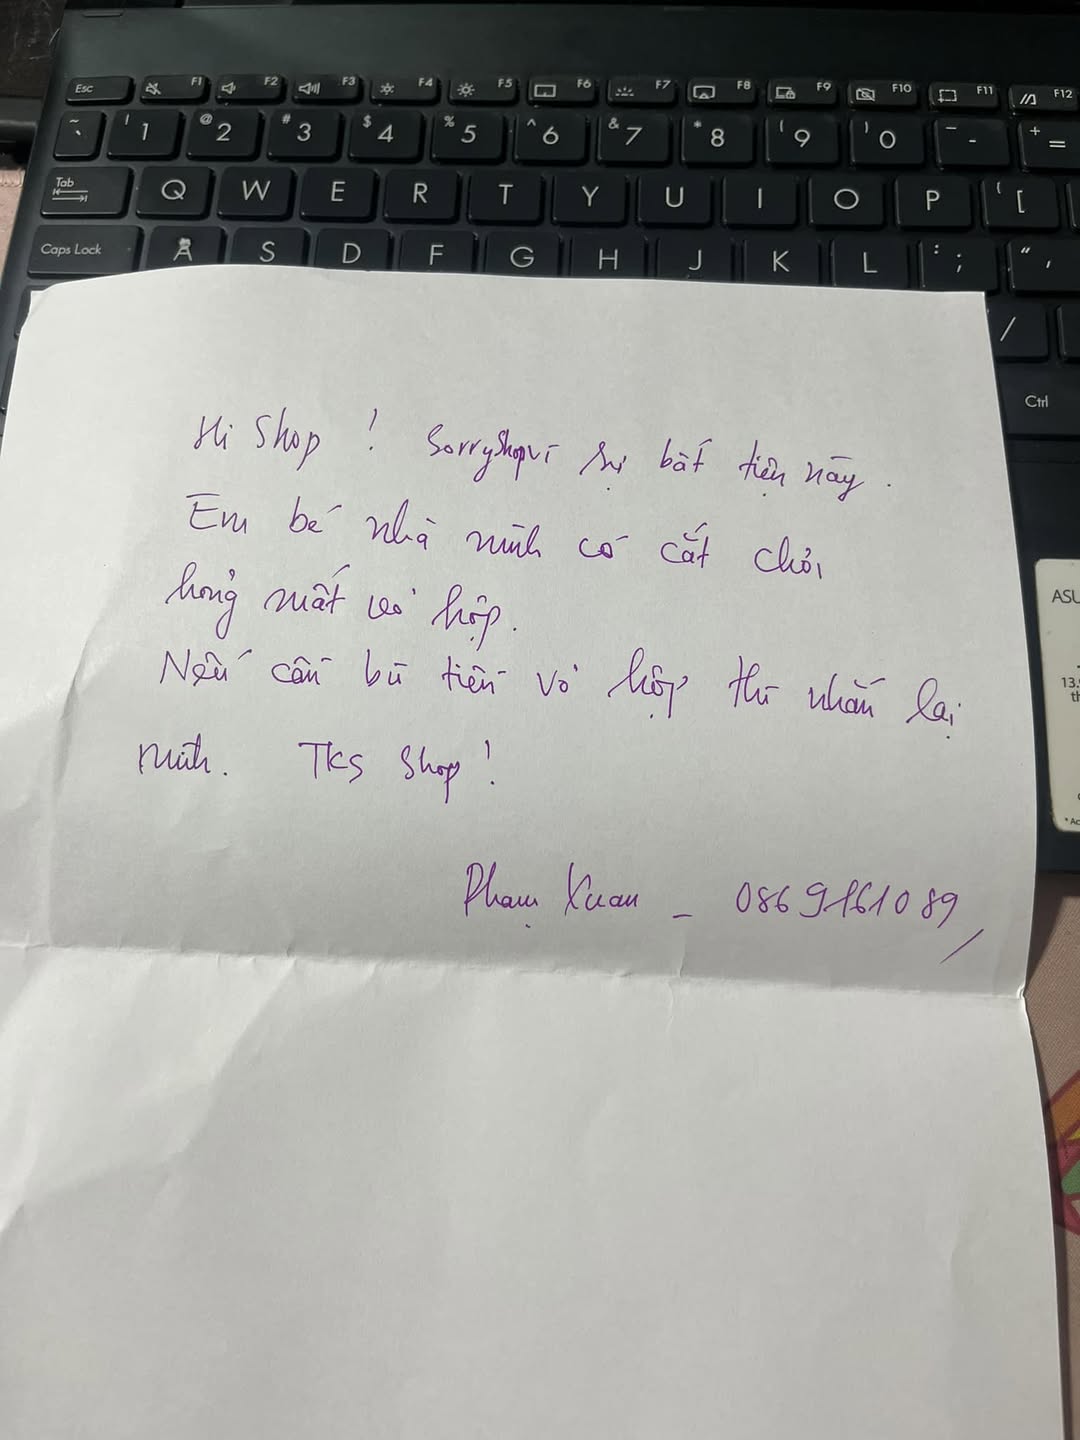 Esc F1 F2 F3 F4 F5 F6 F7 F8 F9 F10 F11 F12
~ ` ! 1 @ 2 # 3 $ 4 % 5 ^ 6 & 7 * 8 ( 9 ) 0 _ - + =
Tab Q W E R T Y U I O P { [
Caps Lock A S D F G H J K L : ; " '
/
Ctrl
Hi Shop ! Sorry shop vì sự bất tiện này.
Em bé nhà mình có cắt chơi
hỏng mất vỏ hộp.
Nếu cần bù tiền vỏ hộp thì nhắn lại
mình. TKS Shop !
Phạm Xuan - 0869161089/
ASU
13.
th
* Ac